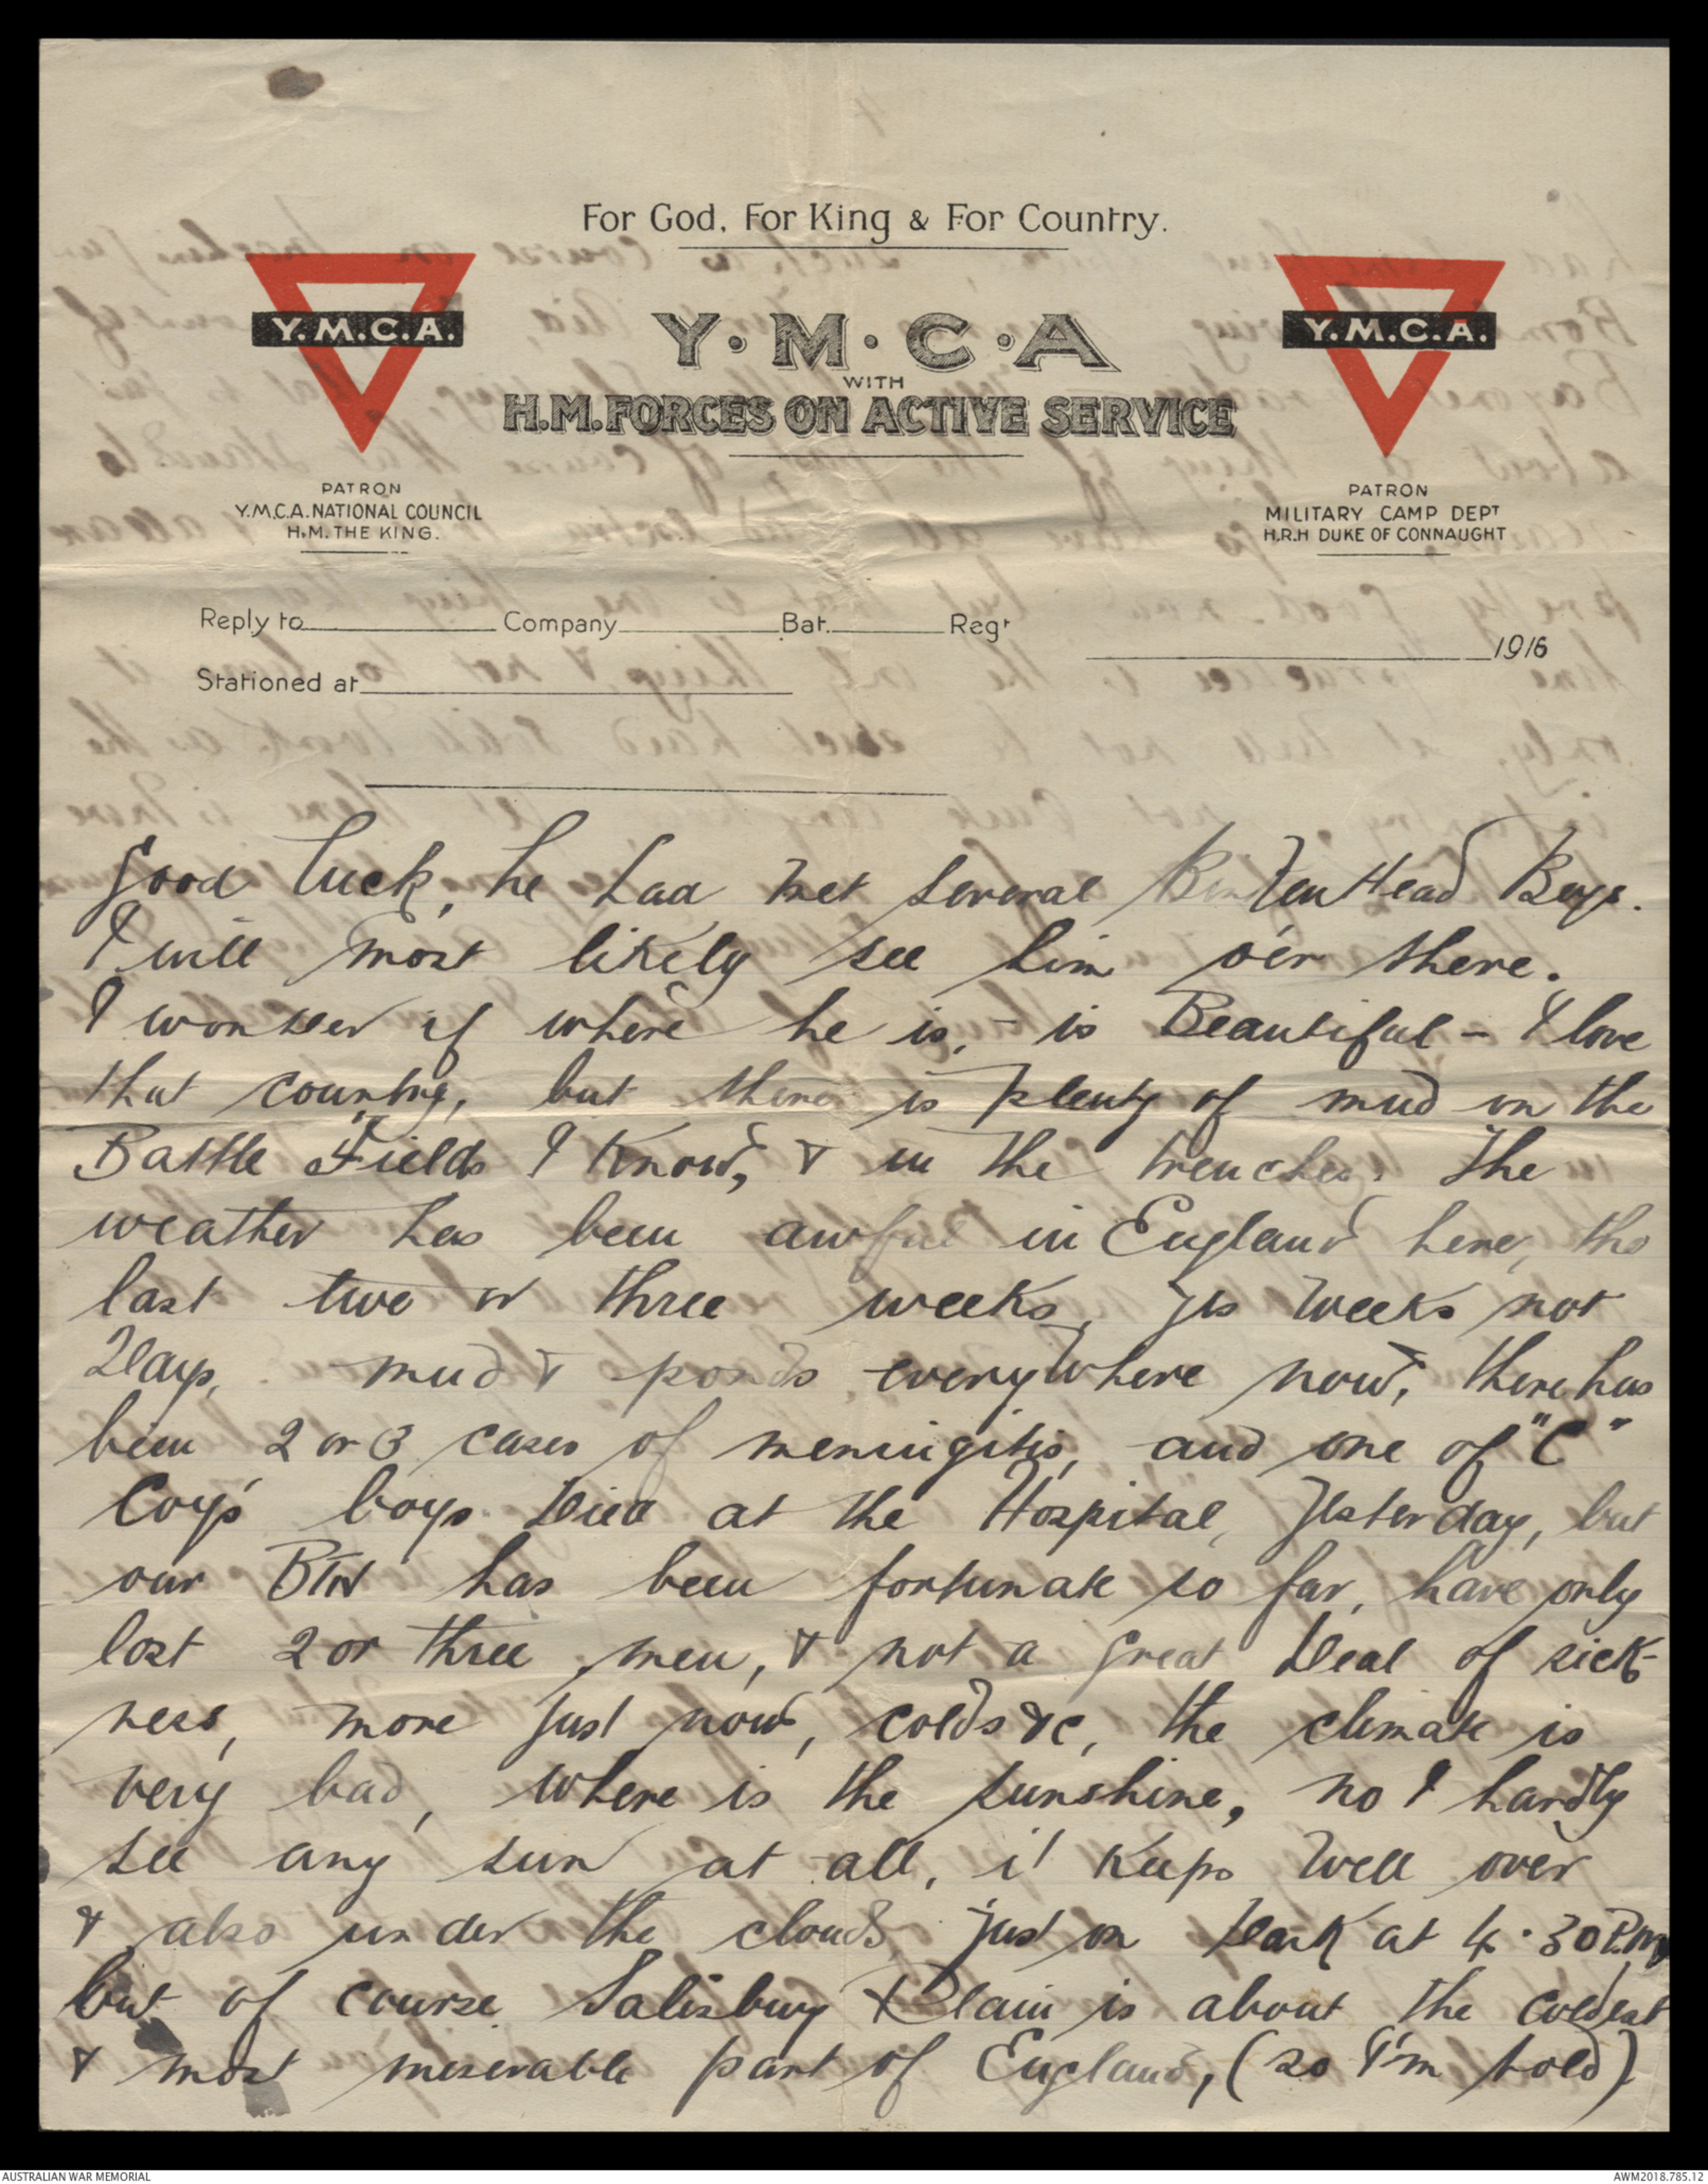 For God, For King & For Country.
Y.M.C.A.
Y.M.C.A.
Y·M·C·A
WITH
H.M. FORCES ON ACTIVE SERVICE
PATRON
Y.M.C.A. NATIONAL COUNCIL
H.M. THE KING.
PATRON
MILITARY CAMP DEPT
H.R.H DUKE OF CONNAUGHT
Reply to Company Bat. Regt
1916
Stationed at
good luck, he had met several Head Boys.
I will most likely see him o'er there.
I wonder if where he is, - is Beautiful - I love
that country, but there is plenty of mud on the
Battle Fields I know, & in the trenches. The
weather has been awful in England here, the
last two or three weeks, yes weeks not
Days, mud & ponds everywhere now, there has
been 2 or 3 cases of meningitis, and one of "C"
Coy's boys Died at the Hospital, yesterday, but
our BTN has been fortunate so far, have only
lost 2 or three men, & not a great Deal of sick-
ness, more just now, colds &c, the climate is
very bad, where is the sunshine, no I hardly
see any sun at all, it keeps well over
& also under the clouds, just on Dark at 4.30 P.M
but of course Salisbury Plain is about the coldest
& most miserable part of England, (so I'm told)
AUSTRALIAN WAR MEMORIAL
AWM2018.785.12